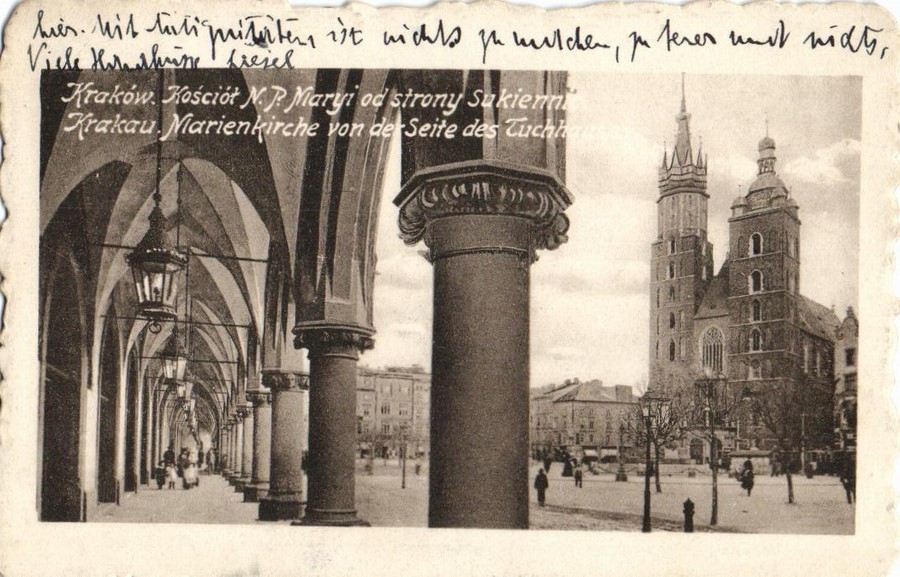 hier. Mit Antiquitäten, ist nichts zu machen, zu teuer und nichts,
Viele Handküsse Liesel
Kraków. Kościół N. P. Maryi od strony Sukiennic.
Krakau. Marienkirche von der Seite des Tuchhau